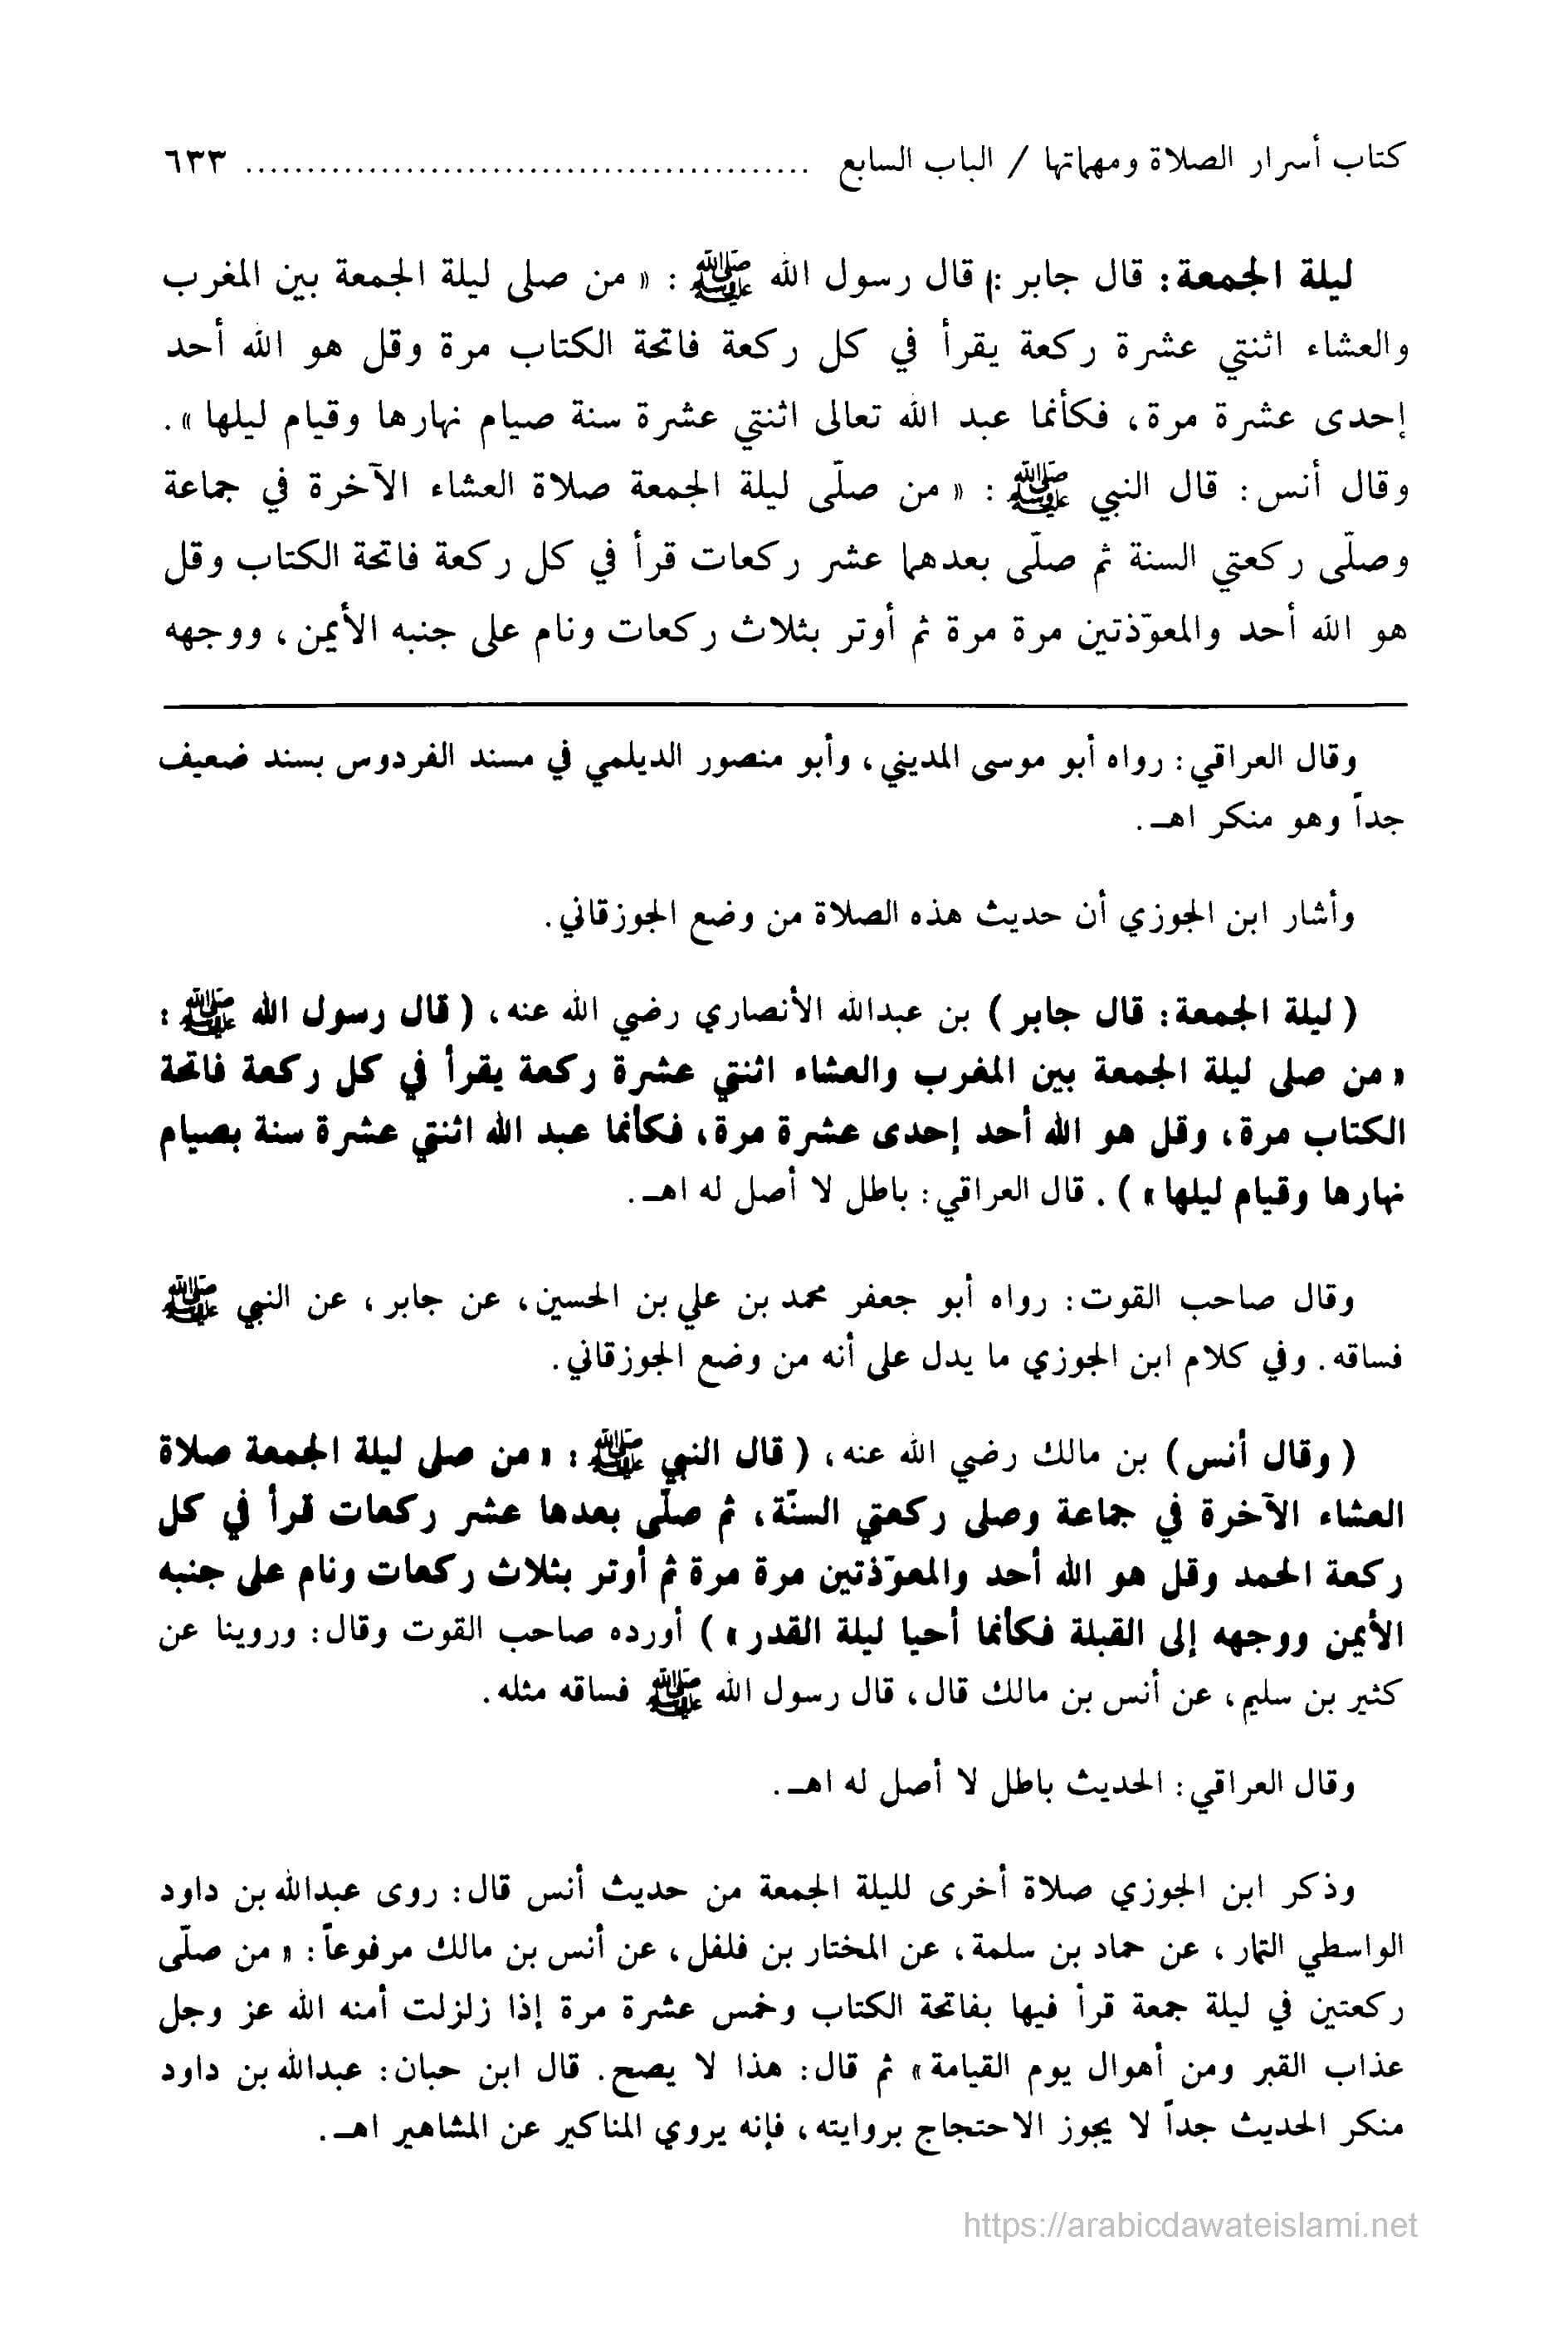 كتاب أسرار الصلاة ومهماتها / الباب السابع .............................................. ٦٣٣
ليلة الجمعة: قال جابر :) قال رسول الله ﷺ : « من صلى ليلة الجمعة بين المغرب
والعشاء اثنتي عشرة ركعة يقرأ في كل ركعة فاتحة الكتاب مرة وقل هو الله أحد
إحدى عشرة مرة، فكأنما عبد الله تعالى اثنتي عشرة سنة صيام نهارها وقيام ليلها ».
وقال أنس: قال النبي ﷺ : « من صلّى ليلة الجمعة صلاة العشاء الآخرة في جماعة
وصلّى ركعتي السنة ثم صلّى بعدهما عشر ركعات قرأ في كل ركعة فاتحة الكتاب وقل
هو الله أحد والمعوّذتين مرة مرة ثم أوتر بثلاث ركعات ونام على جنبه الأيمن، ووجهه
وقال العراقي: رواه أبو موسى المديني، وأبو منصور الديلمي في مسند الفردوس بسند ضعيف
جداً وهو منكر اهـ.
وأشار ابن الجوزي أن حديث هذه الصلاة من وضع الجوزقاني.
( ليلة الجمعة: قال جابر ) بن عبدالله الأنصاري رضي الله عنه، ( قال رسول الله ﷺ :
« من صلى ليلة الجمعة بين المغرب والعشاء اثنتي عشرة ركعة يقرأ في كل ركعة فاتحة
الكتاب مرة، وقل هو الله أحد إحدى عشرة مرة، فكأنما عبد الله اثنتي عشرة سنة بصيام
نهارها وقيام ليلها » ) . قال العراقي: باطل لا أصل له اهـ.
وقال صاحب القوت: رواه أبو جعفر محمد بن علي بن الحسين، عن جابر، عن النبي ﷺ
فساقه. وفي كلام ابن الجوزي ما يدل على أنه من وضع الجوزقاني.
( وقال أنس ) بن مالك رضي الله عنه، ( قال النبي ﷺ : « من صلى ليلة الجمعة صلاة
العشاء الآخرة في جماعة وصلى ركعتي السنّة، ثم صلّى بعدها عشر ركعات قرأ في كل
ركعة الحمد وقل هو الله أحد والمعوّذتين مرة مرة ثم أوتر بثلاث ركعات ونام على جنبه
الأيمن ووجهه إلى القبلة فكأنما أحيا ليلة القدر » ) أورده صاحب القوت وقال: وروينا عن
كثير بن سليم، عن أنس بن مالك قال، قال رسول الله ﷺ فساقه مثله.
وقال العراقي: الحديث باطل لا أصل له اهـ.
وذكر ابن الجوزي صلاة أخرى لليلة الجمعة من حديث أنس قال: روى عبدالله بن داود
الواسطي التمار، عن حماد بن سلمة، عن المختار بن فلفل، عن أنس بن مالك مرفوعاً: « من صلّى
ركعتين في ليلة جمعة قرأ فيها بفاتحة الكتاب وخمس عشرة مرة إذا زلزلت أمنه الله عز وجل
عذاب القبر ومن أهوال يوم القيامة » ثم قال: هذا لا يصح. قال ابن حبان: عبدالله بن داود
منكر الحديث جداً لا يجوز الاحتجاج بروايته، فإنه يروي المناكير عن المشاهير اهـ.
https://arabicdawateislami.net